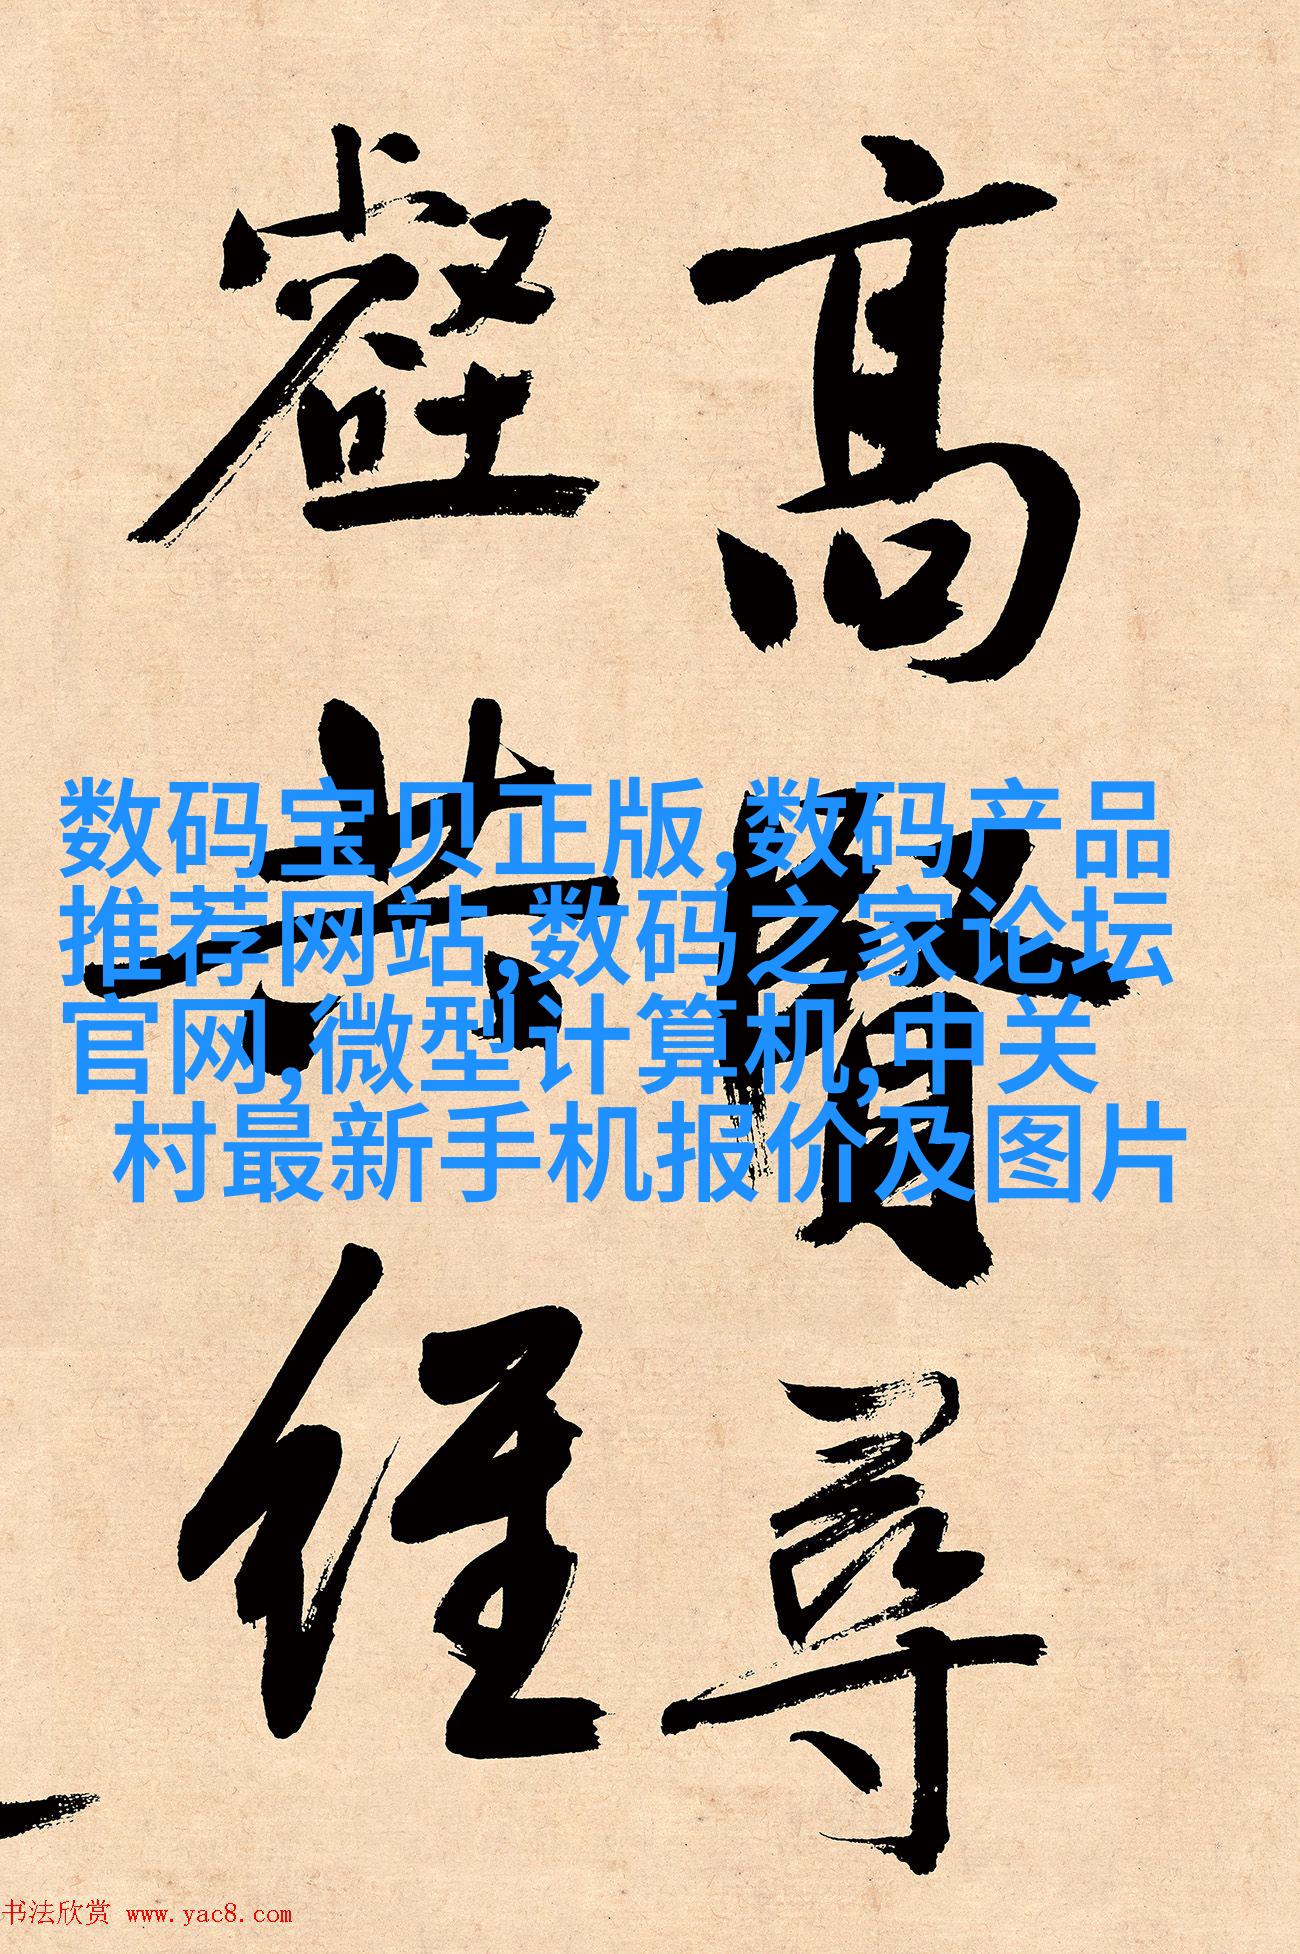 高賢尋
壑共經
数码宝贝正版,数码产品
推荐网站,数码之家论坛
官网,微型计算机,中关
村最新手机报价及图片
书法欣赏 www.yac8.com